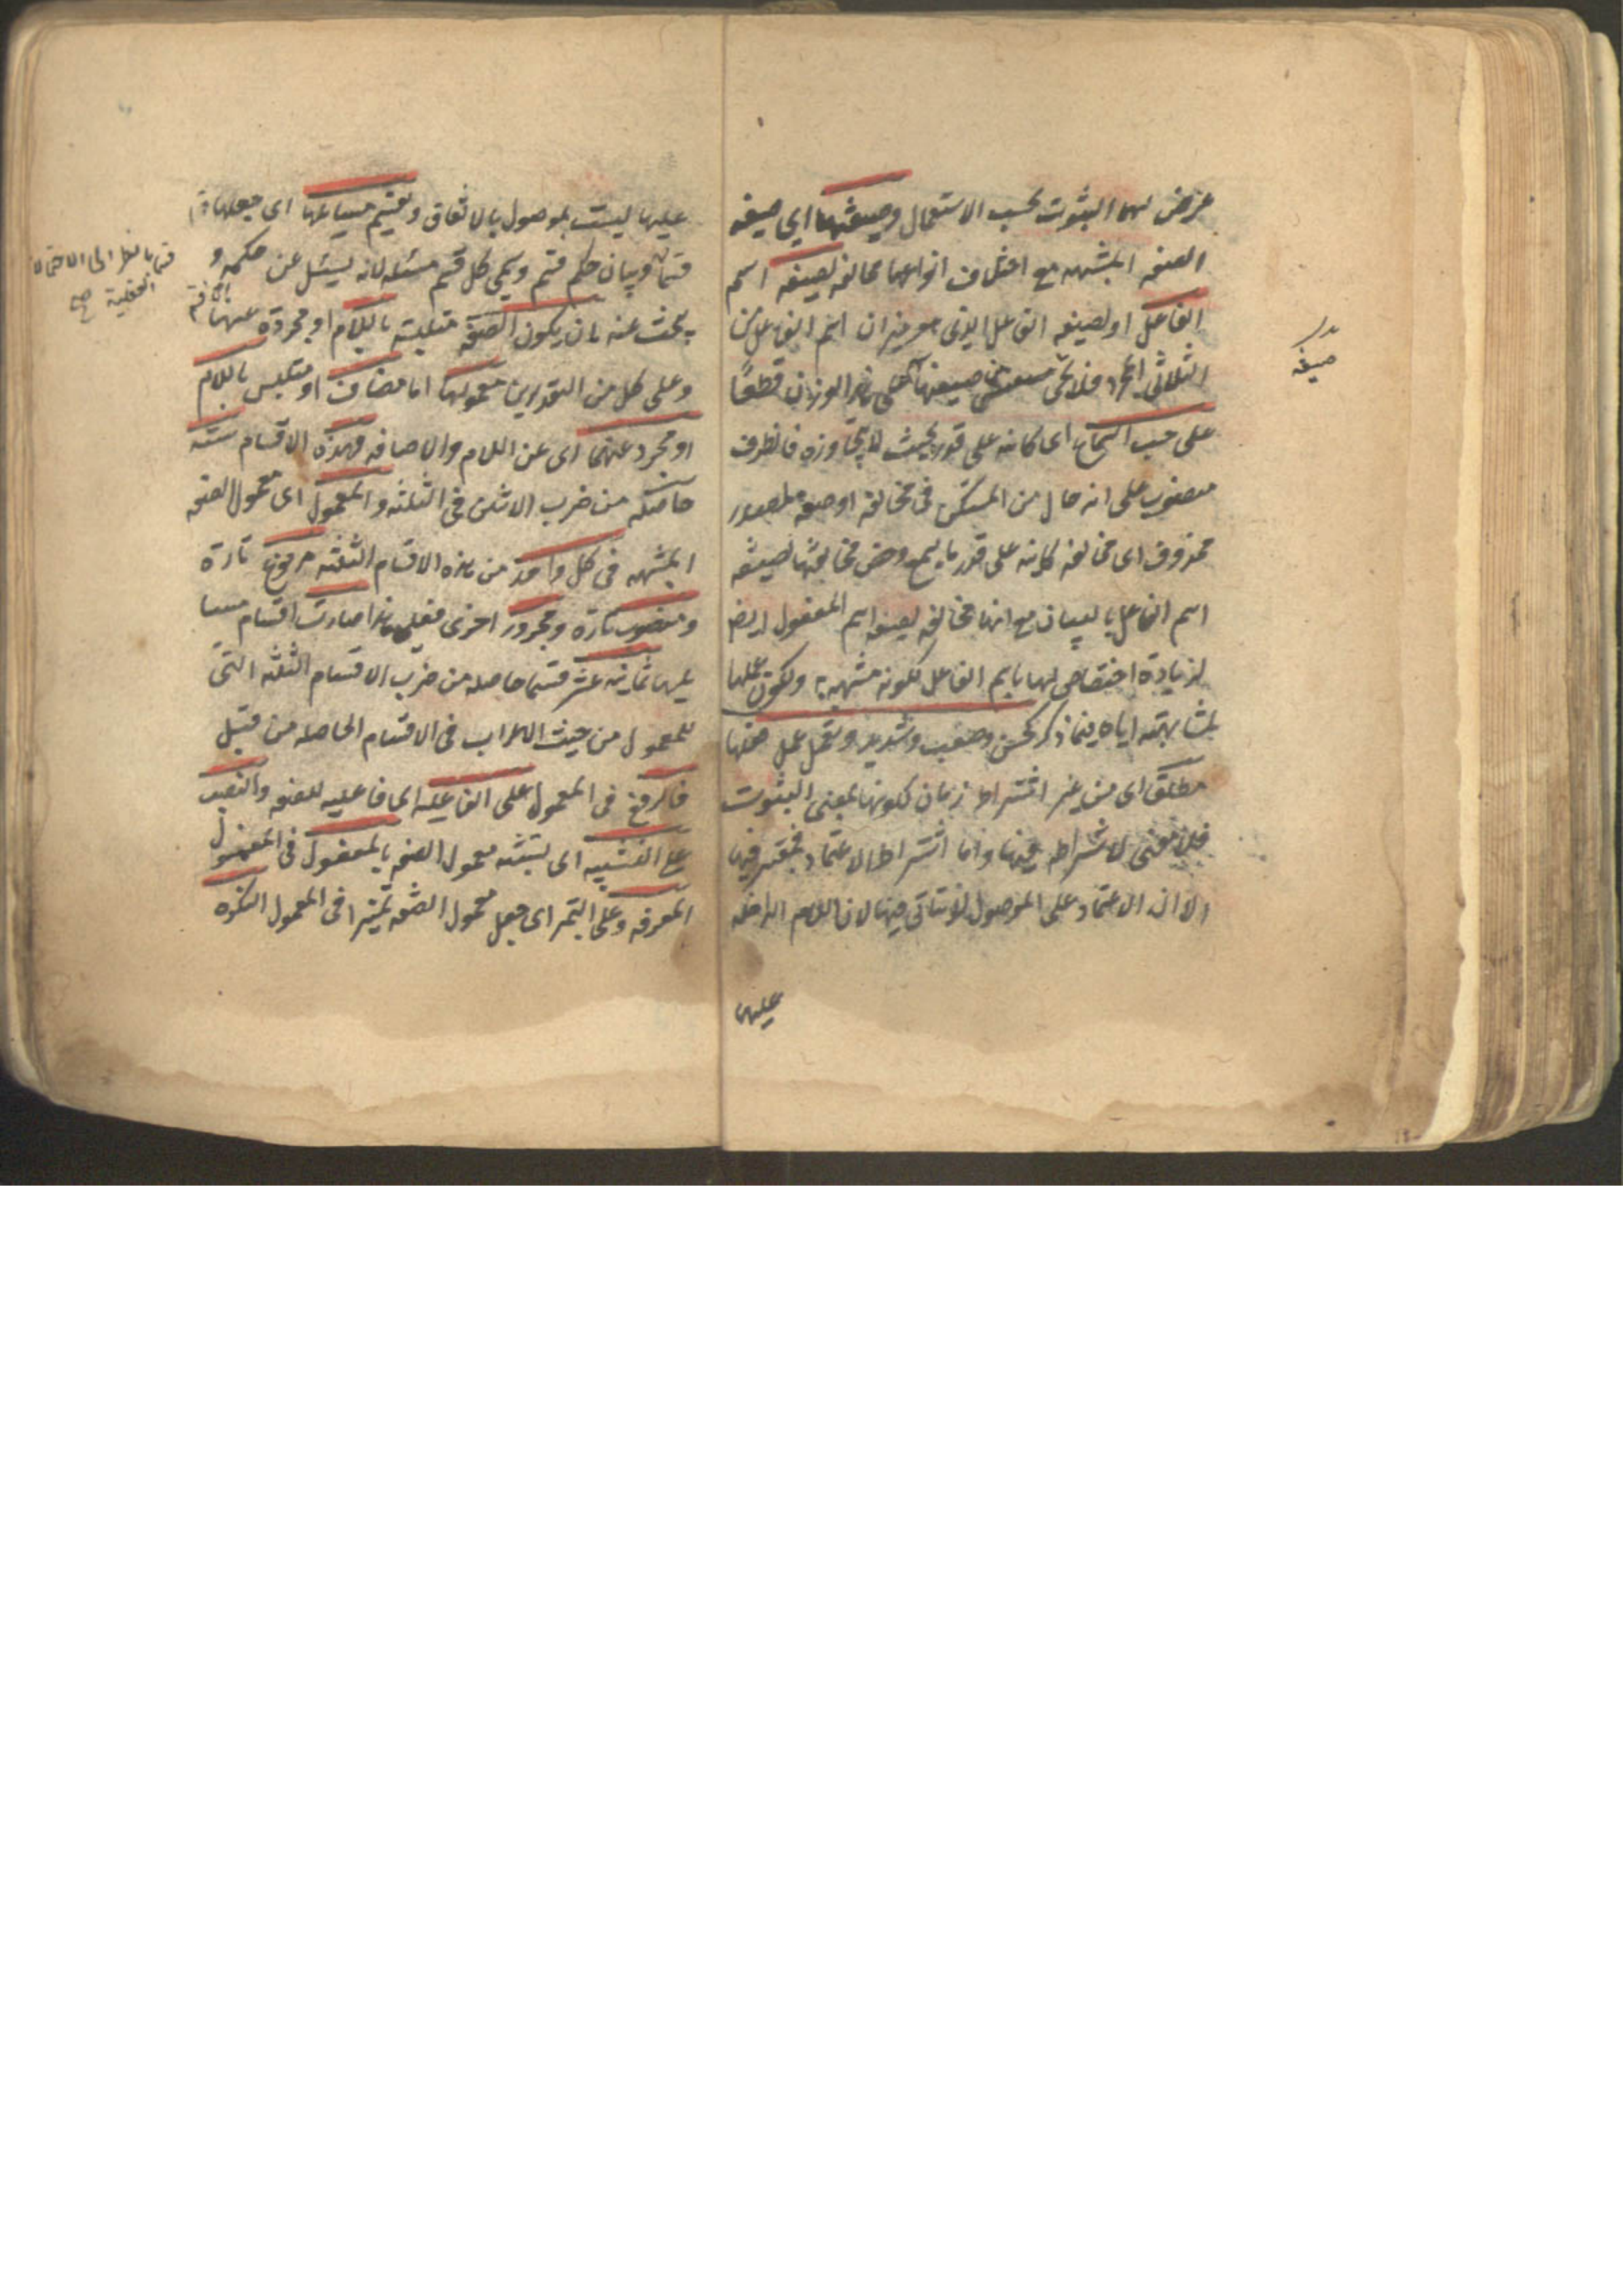 عرض لها الثبوت بحسب الاستعمال وصيغتها اي صيغه
الصفه المشبهه مع اختلاف انواعها مخالفه لصيغه اسم
الفاعل او لصيغه الفاعل الذى هو ميزان اسم الفاعل من
الثلاثى المجرد فلا يجئ صيغتها على هذا الوزن قطعًا
على حسب السماع اى كائنه على قدره بحيث لا يتجاوزه فالظرف
منصوب على انه حال من المستكن فى مخالفه او صفه لمصدر
محذوف اى مخالفه كائنه على قدر ما يسمع وخص مخالفتها لصيغه
اسم الفاعل بالبيان مع انها مخالفه لصيغه اسم المفعول ايض
لزيادة اختصاص لها باسم الفاعل لكونه مشبهه به ولكون عملها
لمشابهته اياه فيما ذكر كحسن وصعب وشديد وتعمل عمل فعلها
مطلقا اى من غير اشتراط زمان لكونها بمعنى الثبوت
فلا معنى لاشتراطه فيها واما اشتراط الاعتماد فمعتبر فيها
الا ان الاعتماد على الموصول لا يتأتى فيها لان اللام الداخله
عليها
صيغه
عليها ليست بموصول بالاتفاق وتقسيم مسائلها اى جعلها
قسما وبيان حكم قسم ويسمى كل قسم مسئله لانه يسئل عن حكمه و
يبحث عنه بان يكون الصفه متلبسة باللام او مجردة عنها
وعلى كل من التقديرين معمولها اما مضاف او متلبس باللام
او مجرد عنهما اى عن اللام والاضافه فهذه الاقسام ستة
حاصله من ضرب الاثنين فى الثلثه والمعمول اى معمول الصفه
المشبهه فى كل واحد من هذه الاقسام الستة مرفوع تارة
ومنصوب تارة ومجرور اخرى فعلى هذا صارت اقسام مسا
ئلها ثمانيه عشر قسما حاصله من ضرب الاقسام الثلثه التى
للمعمول من حيث الاعراب فى الاقسام الحاصله من قبل
فالرفع فى المعمول على الفاعليه اى فاعليه للصفه والنصب
على التشبيه اى بتشبه معمول الصفه بالمفعول فى المعمول
المعرفه وعلى التميز اى جعل معمول الصفه تميزا فى المعمول النكره
قسما بالنظر الى الاحتمالات
العقلية صح